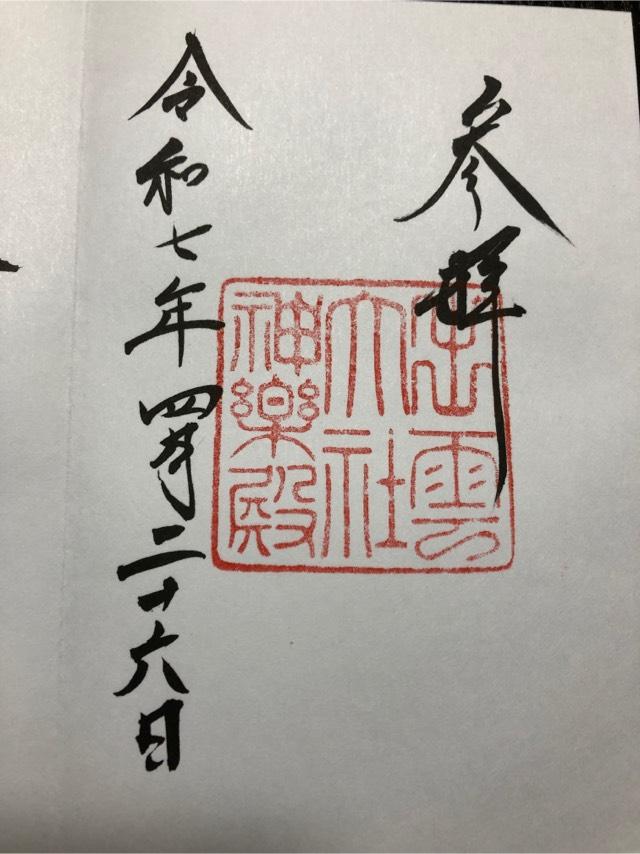 参拝
出雲
大社
神樂殿
令和七年四月二十六日